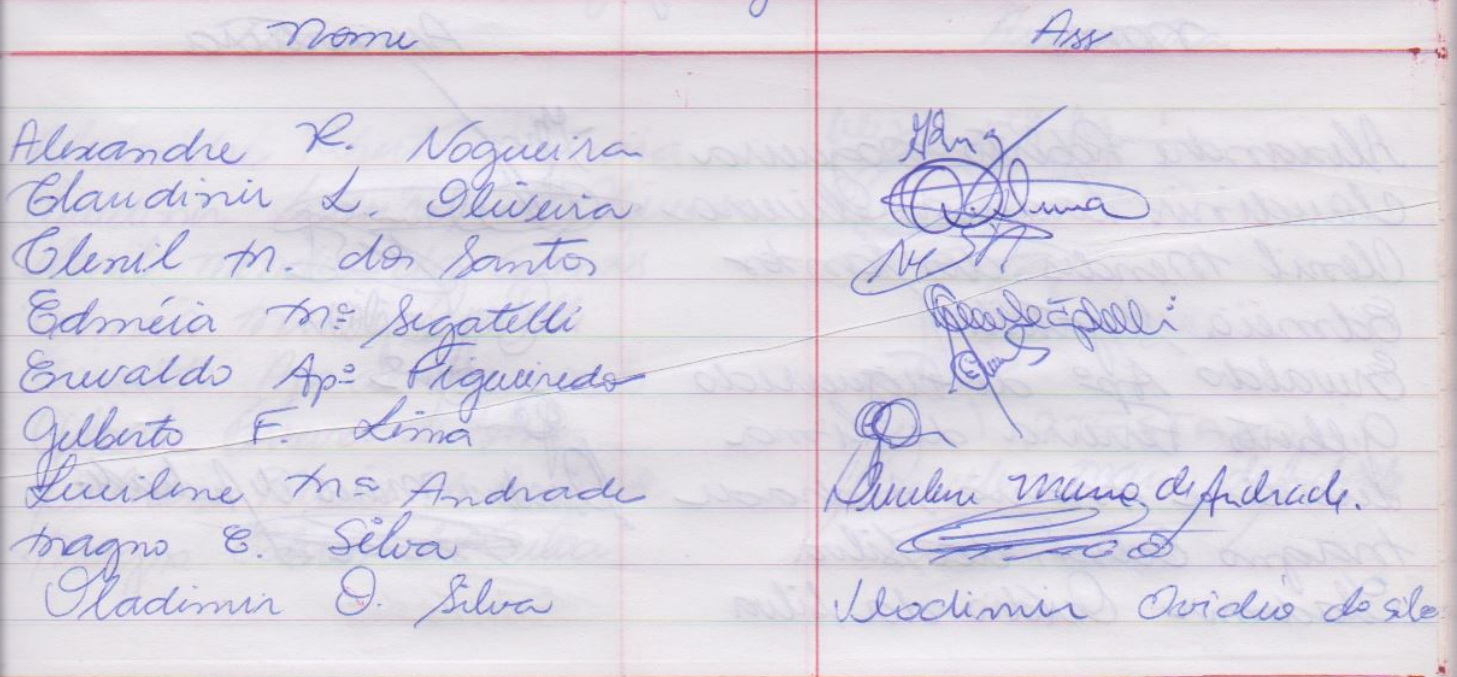 Nome Ass
Alexandre R. Nogueira
Claudinir L. Oliveira
Clenil M. dos Santos
Edméia Mª Segatelli
Erivaldo Apº Figueiredo
Gilberto F. Lima
Lucilene Mª Andrade Lucilene Maria de Andrade.
Magno E. Silva
Vladimir O. Silva Vladimir Ovidio da Silva